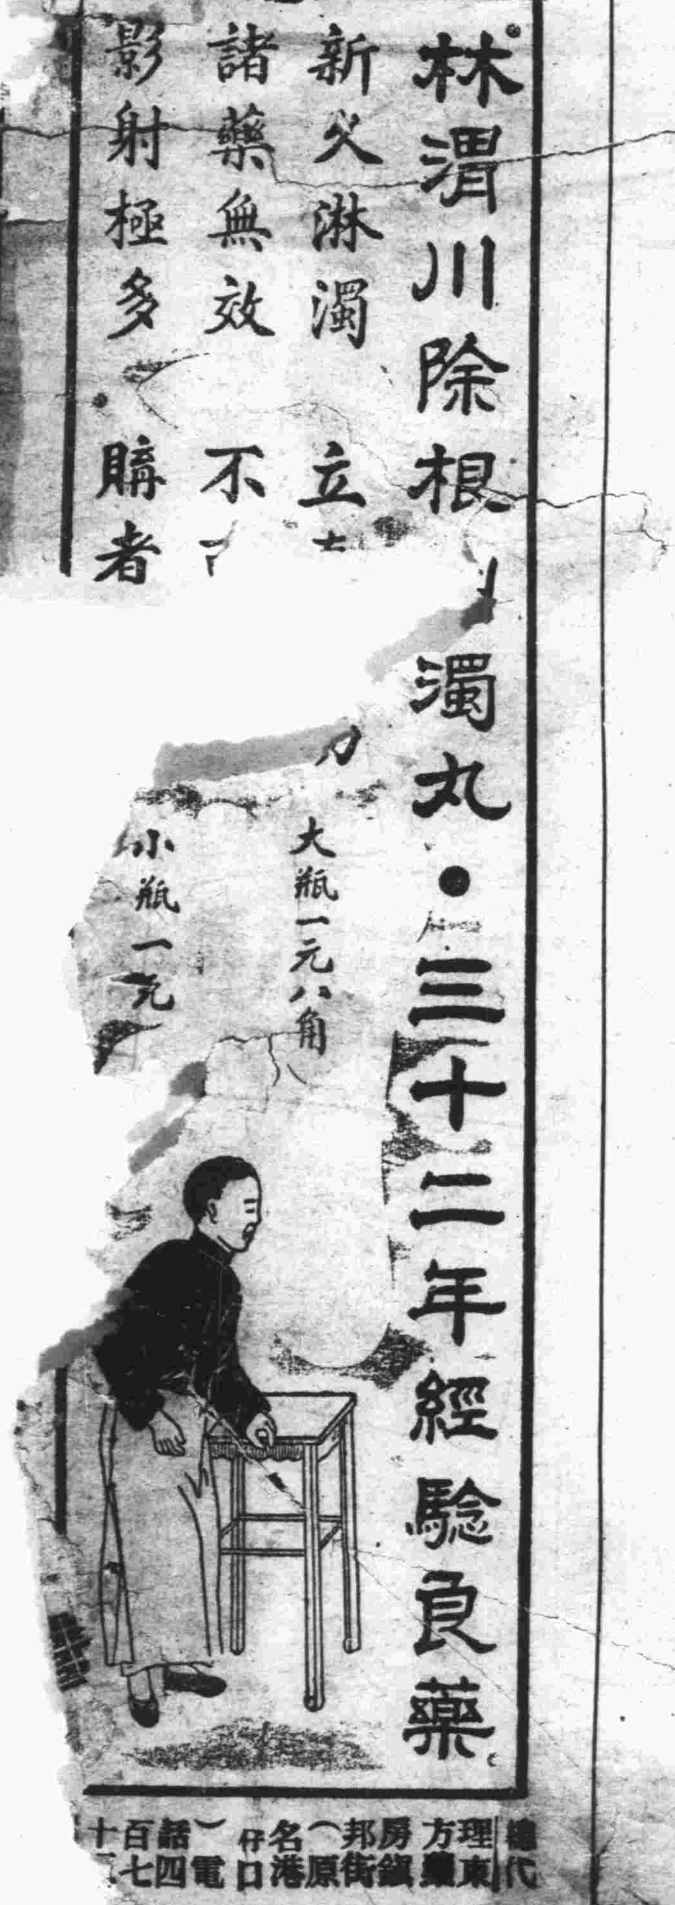 林渭川除根濁丸●三十二年經驗良藥
新久淋濁 立
諸藥無效 不
影射極多 購者
大瓶一元八角
小瓶一元
總代
理東
方藥
房鎮
邦街
（原
名港
仔口
）電
話四
百七
十